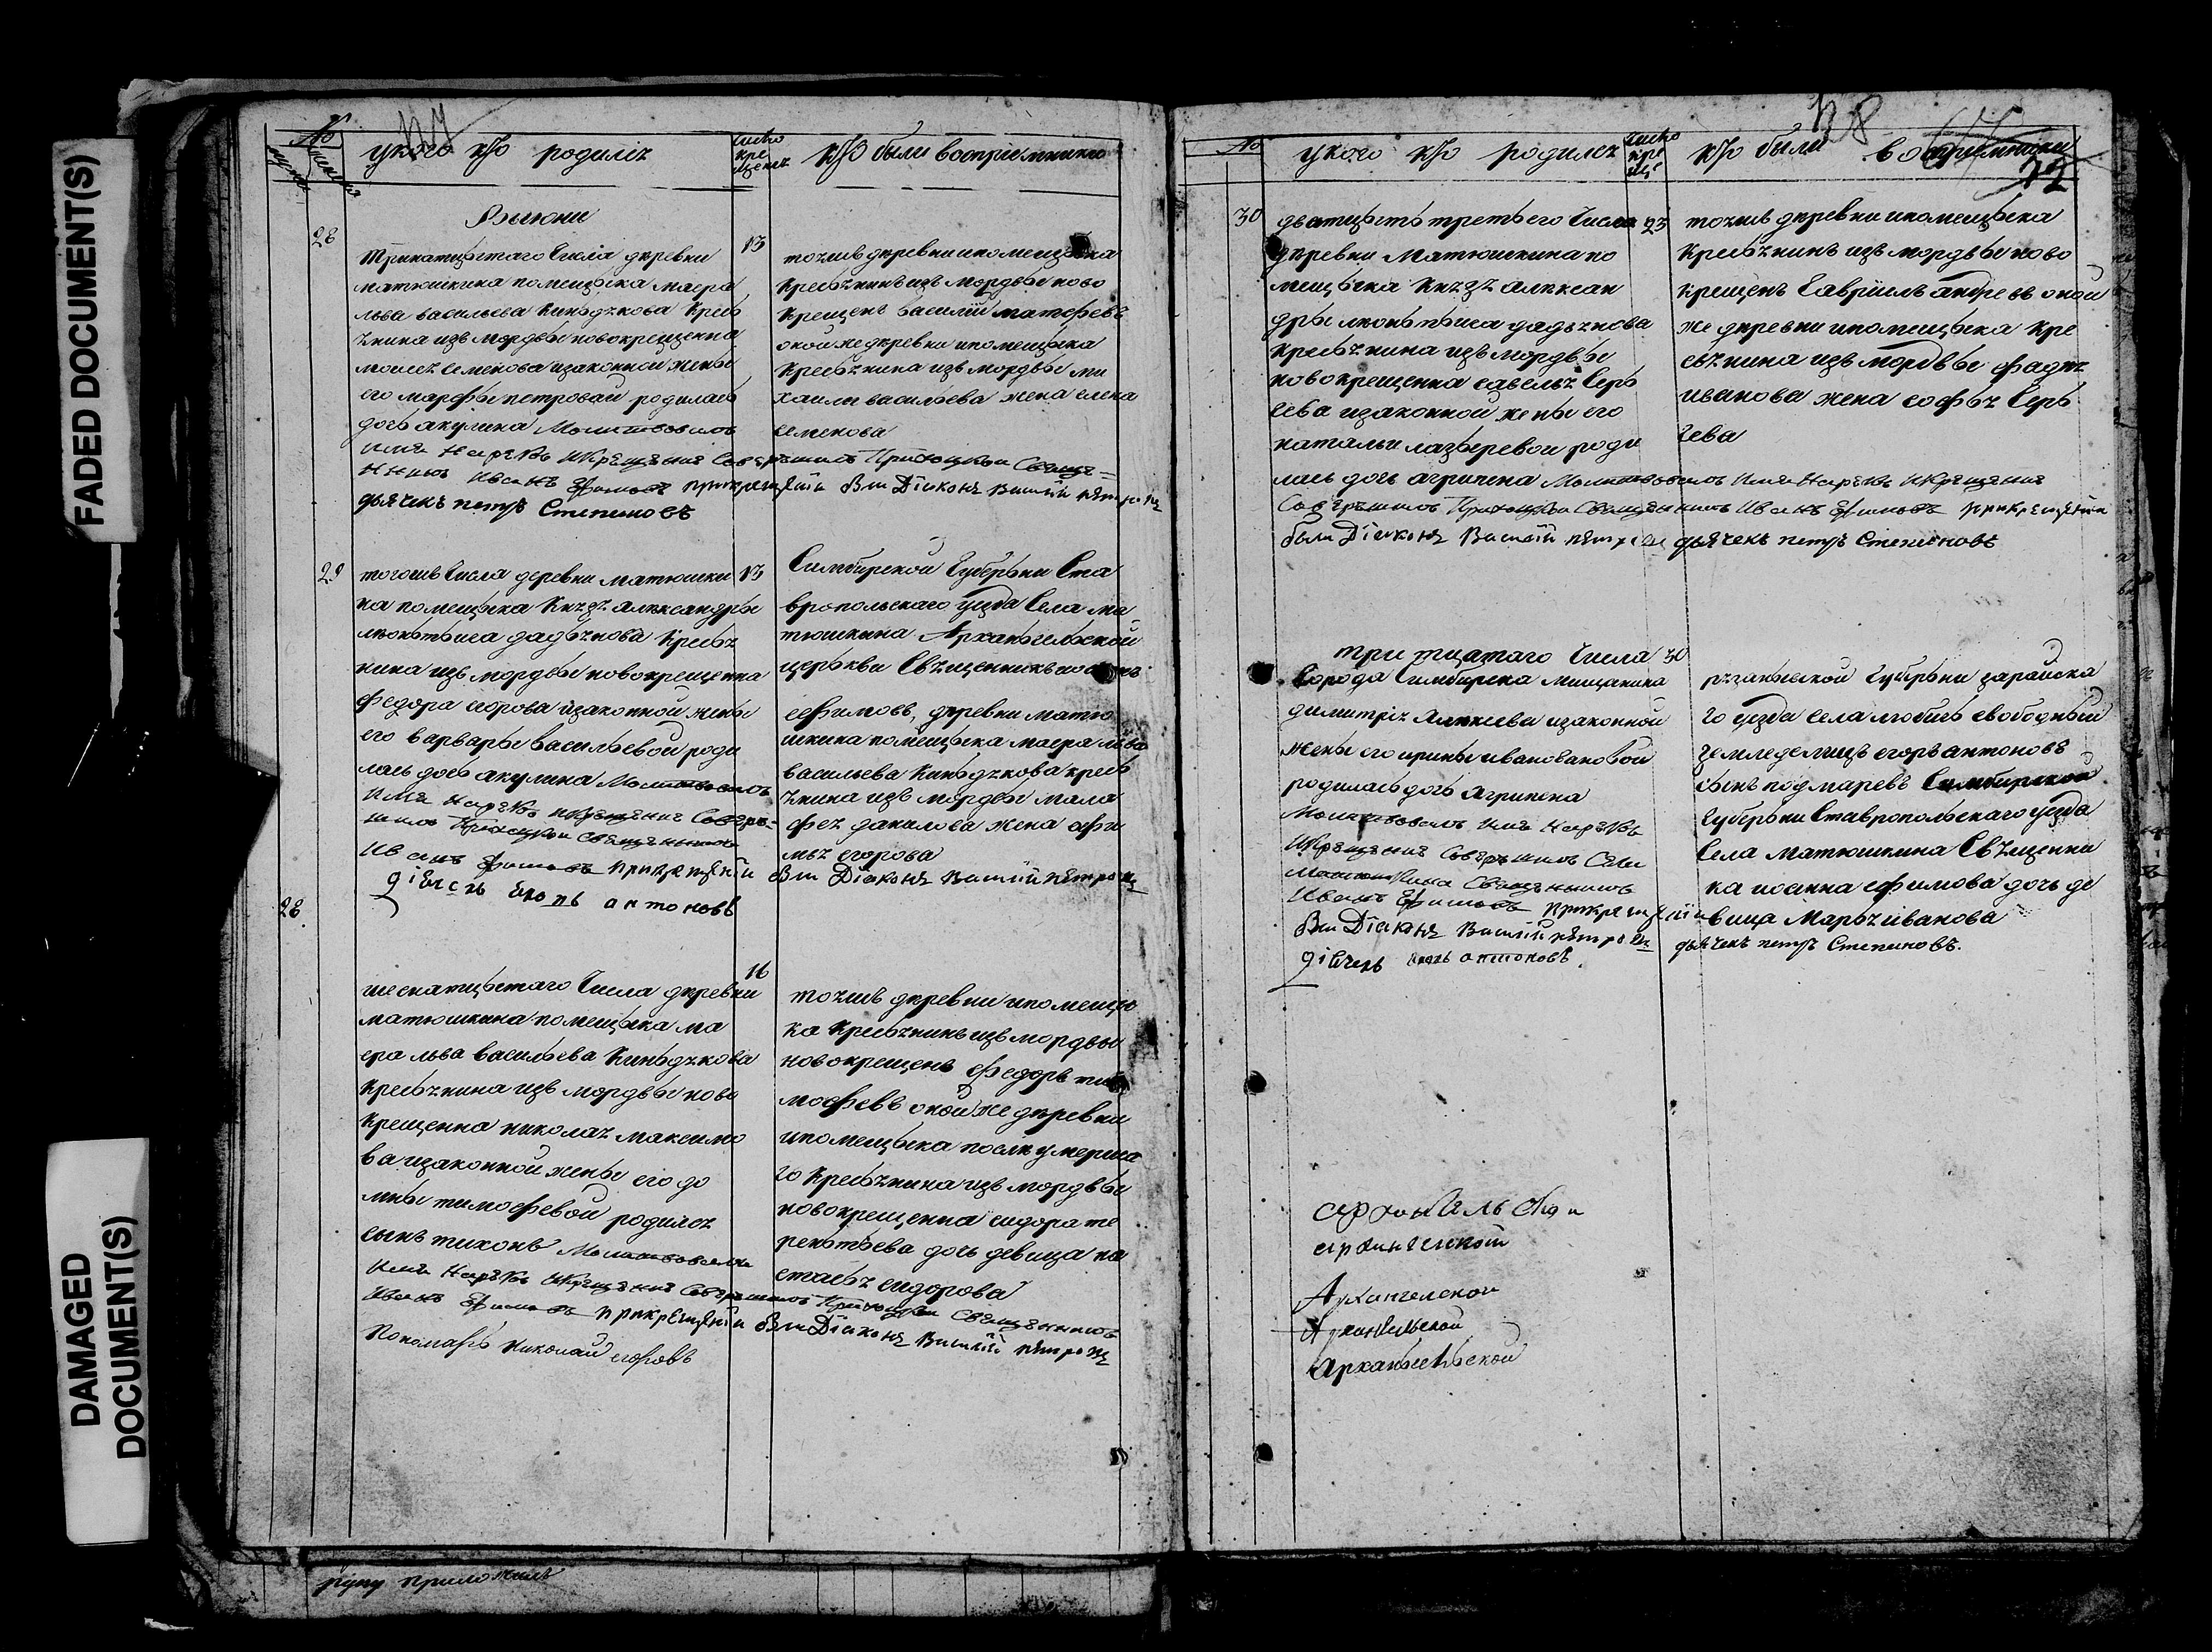 FADED DOCUMENT(S)
DAMAGED
DOCUMENT(S)
№
у кого кто родился
число
кре
щения
кто были восприемники
Виюни
28
13
тринатцетаго числа деревни
матюшкина помещика маера
льва васильева Киньдякова Кресь
янина изъ мордвы новокрещенна
моисея семенова изаконной жены
его марфы петровай родилась
дочь акулина Молитвовалъ
имя Нарѣкъ икрѣщѣние Совершилъ Приходской Свяще=
нникъ Иванъ Ефимовъ прикрещении были Дїаконъ Василїй пѣтровъ
дьячекъ петръ Степановъ
тоежъ деревни ипомещика
Кресьянинъ изъ мордвы ново
крещенъ василий матфевъ
оной же деревни ипомещика
Кресьянина изъ мордвы ми
хаилы васильева жена елена
семенова
29
13
тогожъ числа деревни матюшки
на помещика Князя александры
леонтьиса дадьянова Кресья
нина изъ мордвы новокрещенна
федора егорова изаконной жены
его варвары васильевой роди
лась дочь акулина Молитвовалъ
имя Нарѣкъ икрѣщѣние Совѣр=
шилъ Приходской священникъ
Иванъ Ефимовъ прикрѣщении были Дїаконъ Василїй пѣтровъ
дїячекъ егоръ антоновъ
Симбирской Губерьни Ста
вропольскаго уезда Села ма
тюшкина Арханьгельской
церькви Священникъ
ефимовъ, деревни матю
шкина помещика маера льва
васильева Киньдякова кресь
янина изъ мордвы мала
фея данилова жена афи
мья егорова
28
16
шеснатцетаго Числа деревни
матюшкина помещика ма
ера льва васильева Киньдякова
кресьянина изъ мордвы ново
крещенна николая максимо
ва изаконной жены его до
мны тимофевой родился
сынъ тихонъ Молитвовалъ
имя Нарѣкъ икрѣщѣние Совершилъ Приходской Священникъ
Иванъ Ефимовъ прикрѣщении были Дїаконъ Василїй пѣтровъ
Пономарь Николай егоровъ
тоежъ деревни ипомещи
ка Кресьянинъ изъ мордвы
новокрещенъ федоръ ти
мофевъ оной же деревни
ипомещика после умерша
го Кресьянина изъ мордвы
новокрещенна сидора те
рентьева дочь девица на
стасья сидорова
руку приложилъ
38
12
№
у кого кто родился
число
кре
щ
кто были восприемники
30
23
дватцеть третьего Числа
деревни Матюшкина по
мещика Князя алексан
дры леонтьиса дадьянова
кресьянина изъ мордвы
новокрещенна савелья Серь
еева изаконной жены его
натальи лазеревой роди
лась дочь агрипена Молитвовалъ имя Нарѣкъ икрѣщѣние
Совѣршилъ Приходской Священникъ Иванъ Ефимовъ прикрещении
были Дїаконъ Василїй пѣтровъ дьячекъ петръ Степановъ
тоежъ деревни ипомещика
Кресьянинъ изъ мордвы ново
крещенъ Гаврїилъ андревъ оной
же деревни ипомещика кре
сьянина изъ мордвы фадея
иванова жена софья Серь
геева
тритцатаго Числа 30
Города Симбирска мещанина
димитрия Алексева изаконной
жены его ирины ивановановой
родилась дочь Агрипена
Молитвовалъ имя Нарѣкъ
икрѣщѣние Совѣршилъ Села
Матюшкина Священникъ
Иванъ Ефимовъ прикрещении
были Дїаконъ Василїй пѣтровъ дьячекъ петръ Степановъ.
дїячекъ егоръ антоновъ
рязаньской Губерьни зарайска
го уезда села любичь свободный
земледелецъ егоръ антоновъ
сынъ подмаревъ Симбирской
Губерьни Ставропольскаго уезда
Села Матюшкина Священни
ка иоанна ефимова дочь де
вица Марья иванова
архангельской
Архангелской
Архангельской
Арханьгельской